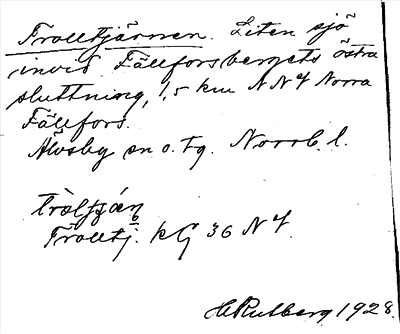 Trolltjärnen. Liten sjö
invid Fällforsbergets östra
sluttning, 1,5 km NNV Norra
Fällfors.
Älvsby sn o. tg. Norrb. l.
Trolltj. kG 36 NV.
H Rutberg 1928.